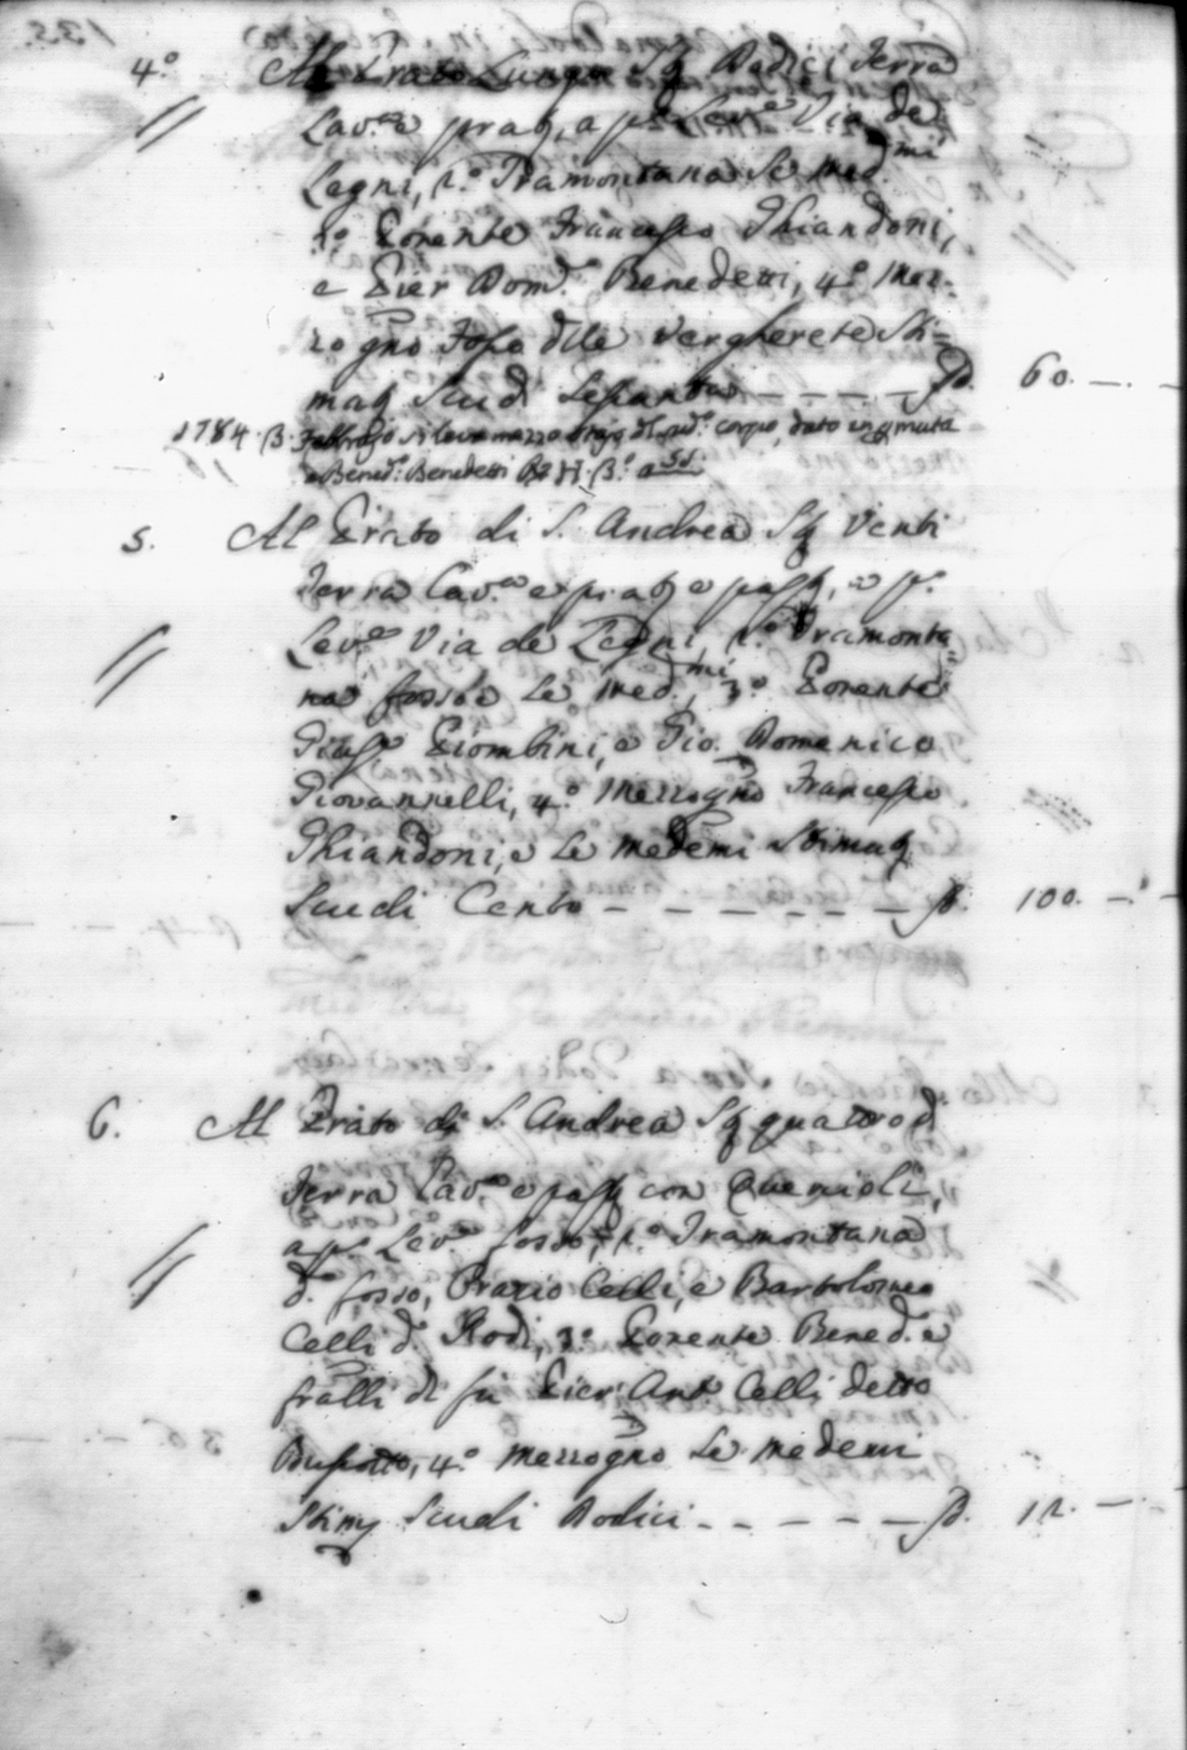 4.° Al Prato Lungo Sq Dodici Terra
Lav.a e prat, a p.° Lev.e Via de
Legni, 2.° Tramontana Le med.mi
3.° Ponente Francesco Ghiandoni,
e Pier Dom.° Benedetti, 4.° Mez-
zogno Fosso dlle Vergherete Sti=
mat Scudi Sessanta - - - - 60. -.-
1784. 3. Febbrajo si leva mezzo stajo dl sud.° corpo, dato in pmuta
a Bened.° Benedetti
5. Al Prato di S. Andrea Sq Venti
Terra Lav.a e prat e pass, a p.°
Lev.e Via de Legni, 2.° Tramonta=
na fosso e Le med.mi, 3.° Ponente
Gius.e Piombini, e Gio. Domenico
Giovannelli, 4.° Mezzogno Francesco
Ghiandoni, e Le medemi Stimat
Scudi Cento - - - - - - 100. -.-
6. Al Prato di S. Andrea Sq quattro di
Terra Lav.a e pass con Querrioli,
a p.° Lev.e fosso, 2.° Tramontana
d.° fosso, Orazio Celli, e Bartolomeo
Celli d.° Rodi, 3.° Ponente Bened.° e
fratlli di fu Pier Ant.° Celli detto
4.° Mezzogno Le medemi
Stim Scudi Dodici - - - - - 12. -.-